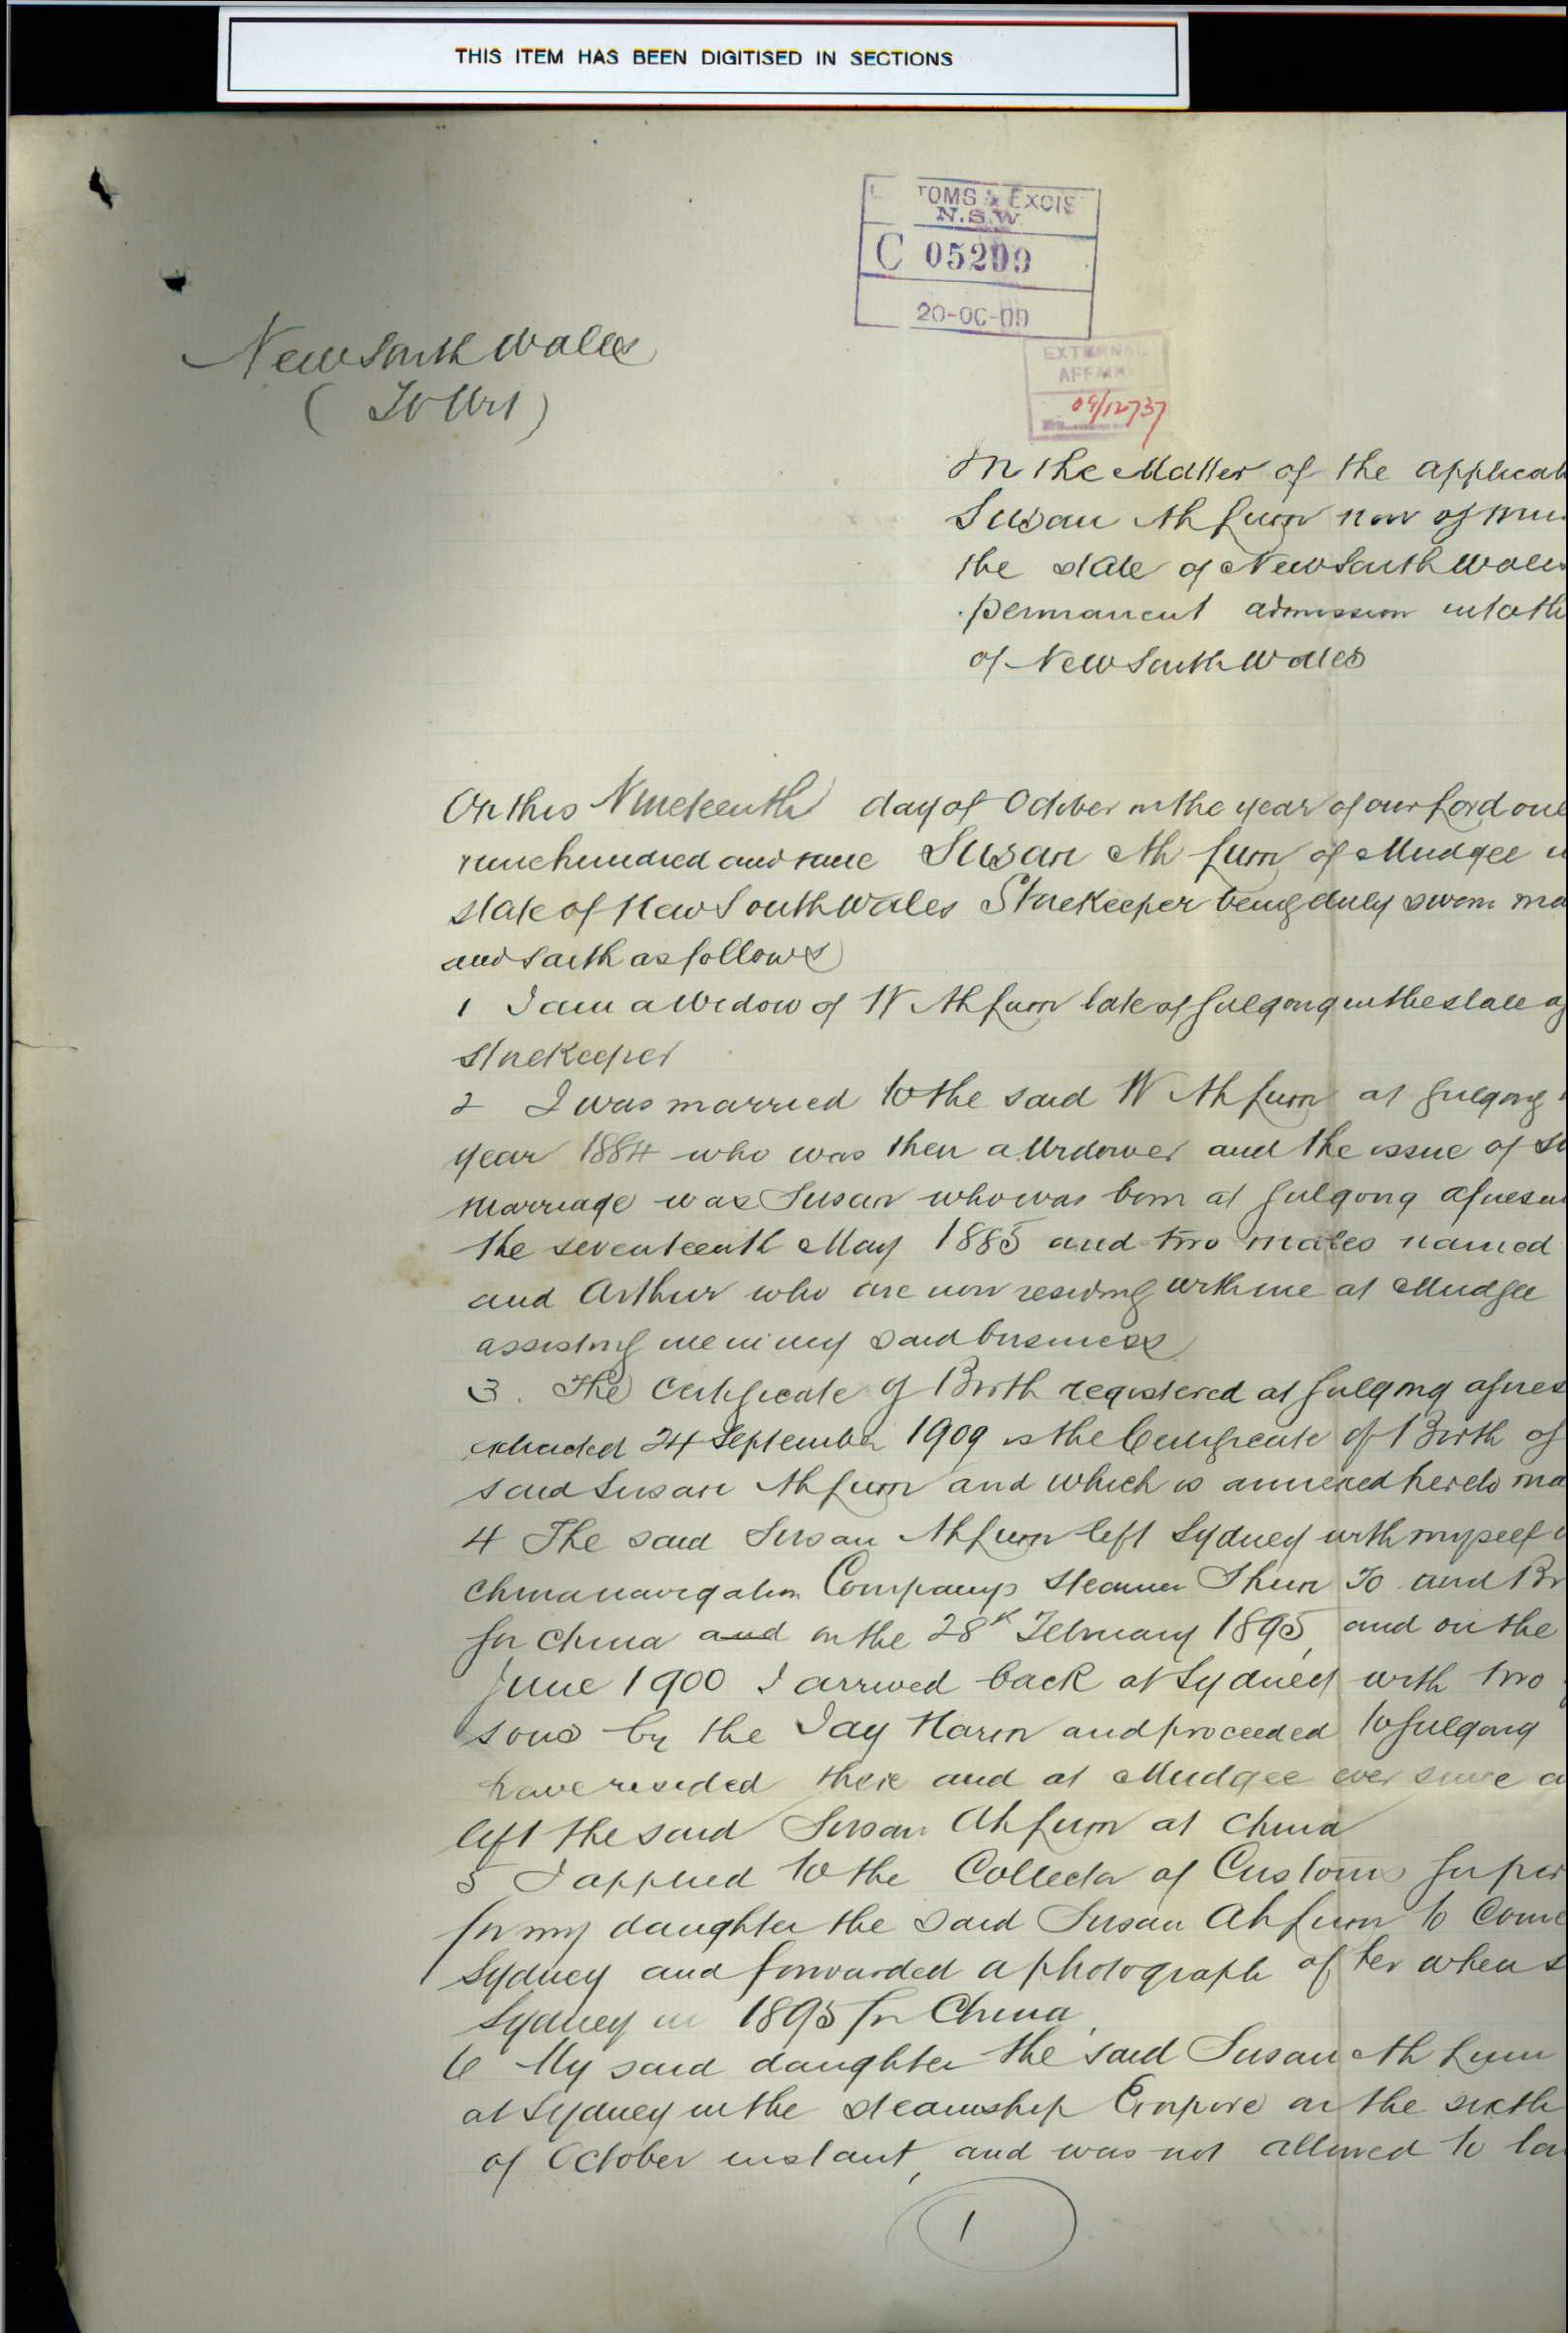 THIS ITEM HAS BEEN DIGITISED IN SECTIONS
TOMS & EXCIS
N.S.W.
C 05299
20-OC-09
EXTERNAL
AFFAIR
09/12737
New South Wales
( To Wit )
In the Matter of the applicat
Susan Ah Lum now of Mu
the state of New South Wales
permanent admission into th
of New South Wales
On this Nineteenth day of October in the year of our Lord one
nine hundred and nine Susan Ah Lum of Mudgee
state of New South Wales Storekeeper being duly sworn ma
and saith as follows
1 I am a Widow of W Ah Lum late of Gulgong in the state of
storekeeper
2 I was married to the said W Ah Lum at Gulgong
year 1884 who was then a Widower and the issue of s
marriage was Susan who was born at Gulgong aforesa
the seventeenth May 1885 and two males named
and Arthur who are now residing with me at Mudgee
assisting me in my said business
3. The Certificate of Birth registered at Gulgong afores
extracted 24 September 1909 is the Certificate of Birth of
said Susan Ah Lum and which is annexed hereto ma
4 The said Susan Ah Lum left Sydney with myself
China navigation Companys steamer Shun To and Br
for China and on the 28th February 1895, and on the
June 1900 I arrived back at Sydney with two
sons by the and proceeded to Gulgong
have resided there and at Mudgee ever since a
left the said Susan Ah Lum at China
5 I applied to the Collector of Customs for per
for my daughter the said Susan Ah Lum to Come
Sydney and forwarded a photograph of her when s
Sydney in 1895 for China,
6 My said daughter the said Susan Ah Lum
at Sydney in the steamship Empire on the sixth
of October instant, and was not allowed to la
1